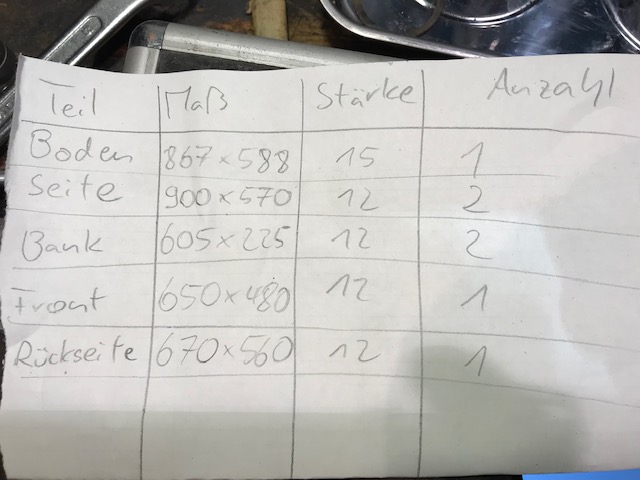 Teil Maß Stärke Anzahl
Boden 867 x 588 15 1
Seite 900 x 570 12 2
Bank 605 x 225 12 2
Front 650 x 480 12 1
Rückseite 670 x 560 12 1